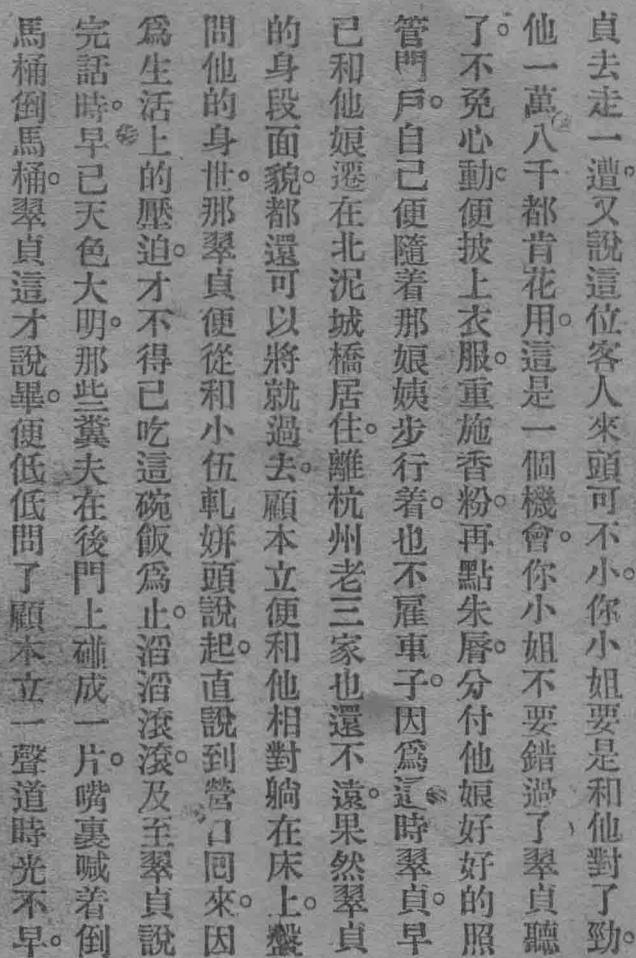 貞去走一遭。又說這位客人來頭可不小。你小姐要是和他對了勁。
他一萬八千都肯花用。這是一個機會。你小姐不要錯過了翠貞聽
了。不免心動。便披上衣服。重施香粉。再點朱唇。分付他娘好好的照
管門戶。自己便隨着那娘姨步行着。也不雇車子。因爲這時翠貞。早
已和他娘遷在北泥城橋居住。離杭州老三家也還不遠。果然翠貞
的身段面貌。都還可以將就過去。顧本立便和他相對躺在床上。盤
問他的身世。那翠貞便從和小伍軋姘頭說起。直說到營口囘來。因
爲生活上的壓迫。才不得已吃這碗飯爲止。滔滔滾滾。及至翠貞說
完話時。早已天色大明。那些糞夫在後門上碰成一片。嘴裏喊着倒
馬桶倒馬桶。翠貞這才說畢。便低低問了顧本立一聲道時光不早。